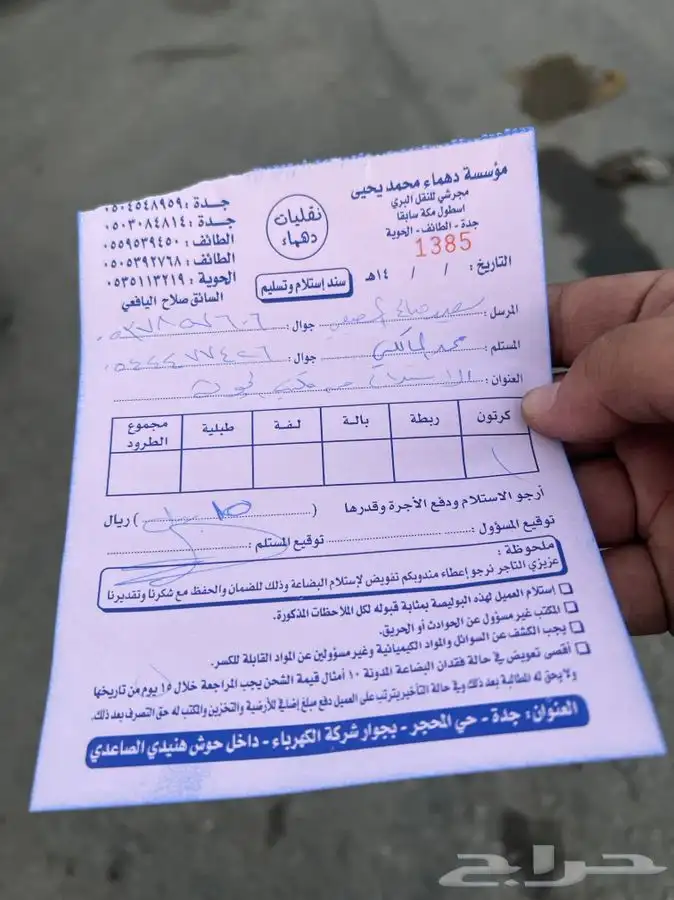 مؤسسة دهماء محمد يحيى
مجرشي للنقل البري
اسطول مكة سابقا
جدة - الطائف - الحوية
1385
نقليات
دهماء
سند إستلام وتسليم
جدة : ٠٥٠٤٥٤٨٩٥٩
جدة : ٠٥٠٣٠٨٤٨١٤
الطائف : ٠٥٥٩٥٣٩٤٥٠
الطائف : ٠٥٠٥٣٩٢٧٦٨
الحوية : ٠٥٣٥١١٣٢١٩
السائق صلاح اليافعي
التاريخ : / / ١٤هـ
المرسل : جوال :
المستلم : محمد المالكي جوال :
العنوان :
كرتون ربطة بالة لفة طبلية مجموع الطرود
أرجو الاستلام ودفع الأجرة وقدرها ( ) ريال
توقيع المسؤول : توقيع المستلم :
ملحوظة :
عزيزي التاجر نرجو إعطاء مندوبكم تفويض لإستلام البضاعة وذلك للضمان والحفظ مع شكرنا وتقديرنا
إستلام العميل لهذه البوليصة بمثابة قبوله لكل الملاحظات المذكورة.
المكتب غير مسؤول عن الحوادث أو الحريق.
يجب الكشف عن السوائل والمواد الكيميائية وغير مسؤولين عن المواد القابلة للكسر.
أقصى تعويض في حالة فقدان البضاعة المدونة ١٠ أمثال قيمة الشحن يجب المراجعة خلال ١٥ يوم من تاريخها
ولا يحق له المطالبة بعد ذلك وفي حالة التأخير يترتب على العميل دفع مبلغ إضافي للأرضية والتخزين والمكتب له حق التصرف بعد ذلك.
العنوان : جدة - حي المحجر - بجوار شركة الكهرباء - داخل حوش هنيدي الصاعدي
حراج